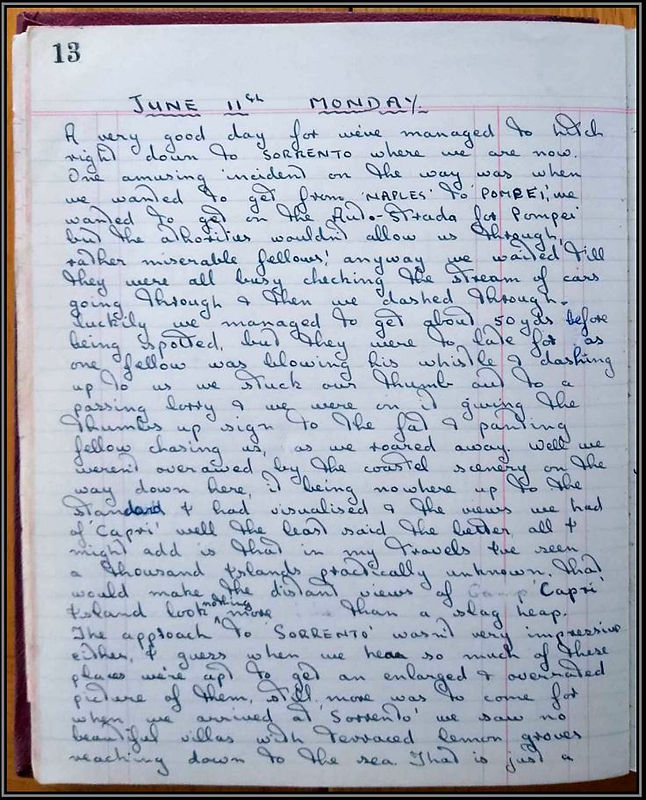 13
JUNE 11th MONDAY.
A very good day for we've managed to hitch
right down to SORRENTO where we are now.
One amusing incident on the way was when
we wanted to get from 'NAPLES' to 'POMPEI', we
wanted to get on the Auto-Strada for Pompei
but the athorities wouldn't allow us through,
rather miserable fellows! anyway we waited till
they were all busy checking the stream of cars
going through & then we dashed through.
Luckily we managed to get about 50 yds before
being spotted, but they were to late for as
one fellow was blowing his whistle & dashing
up to us we stuck our thumb out to a
passing lorry & we were on it giving the
thumbs up sign to the fat & panting
fellow chasing us, as we roared away. Well we
weren't overawed by the coastal scenery on the
way down here, it being nowhere up to the
standard I had visualised & the views we had
of 'Capri' well the least said the better, all I
might add is that in my travels I've seen
a thousand Islands practically unknown. That
would make the distant views of 'Capri'
Island look nothing more than a slag heap.
The approach to 'SORRENTO' wasn't very impressive
either, I guess when we hear so much of these
places we're apt to get an enlarged & overrated
picture of them, still more was to come for
when we arrived at 'Sorrento' we saw no
beautiful villas with terraced lemon groves
reaching down to the sea. That is just a